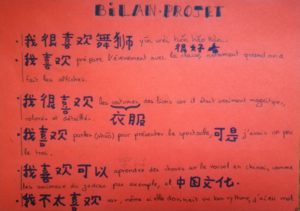 BILAN-PROJET
· 我很喜欢舞狮 yīn wèi hěn hǎo kàn.
很好看
· 我喜欢 préparé l'évènement avec la classe, notamment quand on a
fait les affiches.
· 我很喜欢 les costumes des lions car il était vraiment magnifique,
colorés et détaillé. 衣服
· 我喜欢 parler (shuō) pour présenter le spectacle, 可是 j'avais un peu
le trac.
· 我喜欢可以 apprendre des choses sur le nouvel en chinois, comme
les animaux du zodiac par exemple, et 中国文化.
· 我不太喜欢 car, même si elle donnait un bon rythme, j'ai eu mal